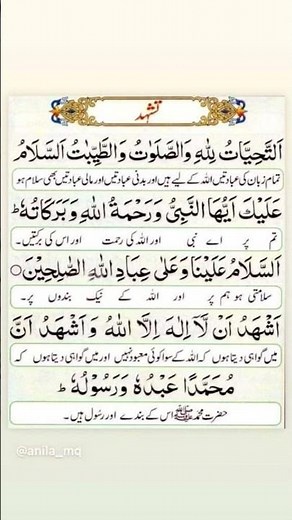 تشہد
اَلتَّحِيَّاتُ لِلّٰهِ وَالصَّلَوٰتُ وَالطَّيِّبٰتُ اَلسَّلَامُ
تمام زبان کی عبادتیں اللہ کے لیے ہیں اور بدنی عبادتیں اور مالی عبادتیں بھی سلام ہو
عَلَيْكَ اَيُّهَا النَّبِيُّ وَرَحْمَةُ اللهِ وَبَرَكَاتُهٗ ؕ
تم پر اے نبی اور اللہ کی رحمت اور اس کی برکتیں۔
اَلسَّلَامُ عَلَيْنَا وَعَلٰى عِبَادِ اللهِ الصّٰلِحِيْنَ ○
سلامتی ہو ہم پر اور اللہ کے نیک بندوں پر۔
اَشْهَدُ اَنْ لَّآ اِلٰهَ اِلَّا اللهُ وَاَشْهَدُ اَنَّ
میں گواہی دیتا ہوں کہ اللہ کے سوا کوئی معبود نہیں اور میں گواہی دیتا ہوں کہ
مُحَمَّدًا عَبْدُهٗ وَرَسُوْلُهٗ ؕ
حضرت محمد ﷺ اس کے بندے اور رسول ہیں۔
@anila_mq